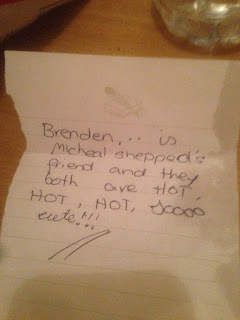 Brenden... is
Micheal shepped's
friend and they
both are HOT,
HOT, HOT, Soooo
cute!!!